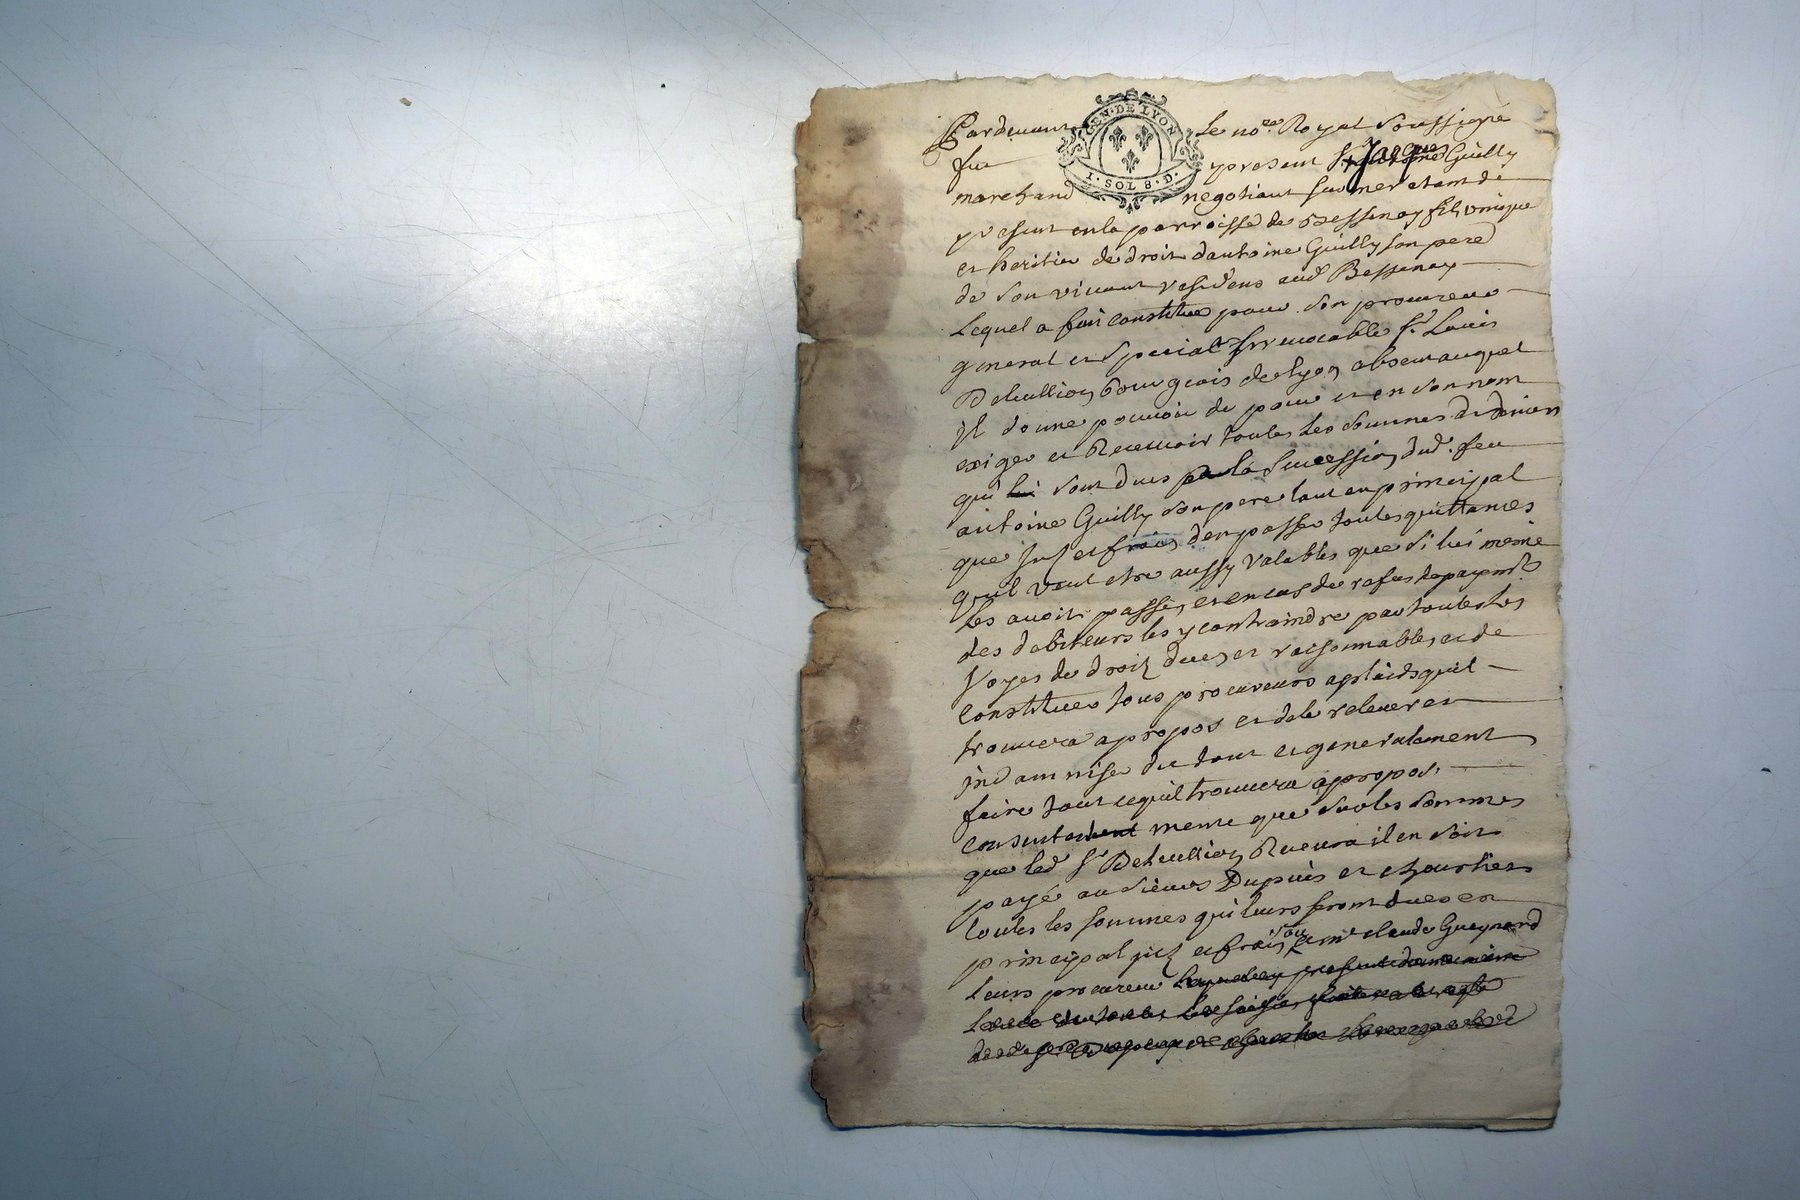 GEN·DE LYON
I·SOL 8·D·
Pardevant Le no.re Royal Soussigné
fut present Sr Jacques Guilly
marchand negotiant sur mer etant de
present en la parroisse de Bessenay fils unique
et heritier de droit dantoine Guilly son pere
de son vivant resident aud Bessenay
Lequel a fait constitué pour son procureur
general et special Irrevocable Sr. Louis
bourgeois de Lyon absent auquel
il donne pouvoir de pour et en son nom
exiger et Recevoir toutes les sommes de deniers
qui lui sont dues la succession dud. feu
antoine Guilly son pere tant en principal
que et frais, den passer toutes quittances
quil veut etre aussy valables que si lui même
les avoit passé, et en cas de refus de payemts
des debiteurs les y contraindre par toutes les
Voyes de droit dues et raisonnables, et de
constituer tous procureurs quil
trouvera apropos et de le relever et
indamniser du tout et generalement
faire tout cequil trouvera apropos.
consentant meme que sur les sommes
que led Sr Recevra il en soit
payé au sieurs Dupuis et
toutes les sommes qui leurs seront dues en
principal et frais, ou a me claude Gueynard
Leurs procureur